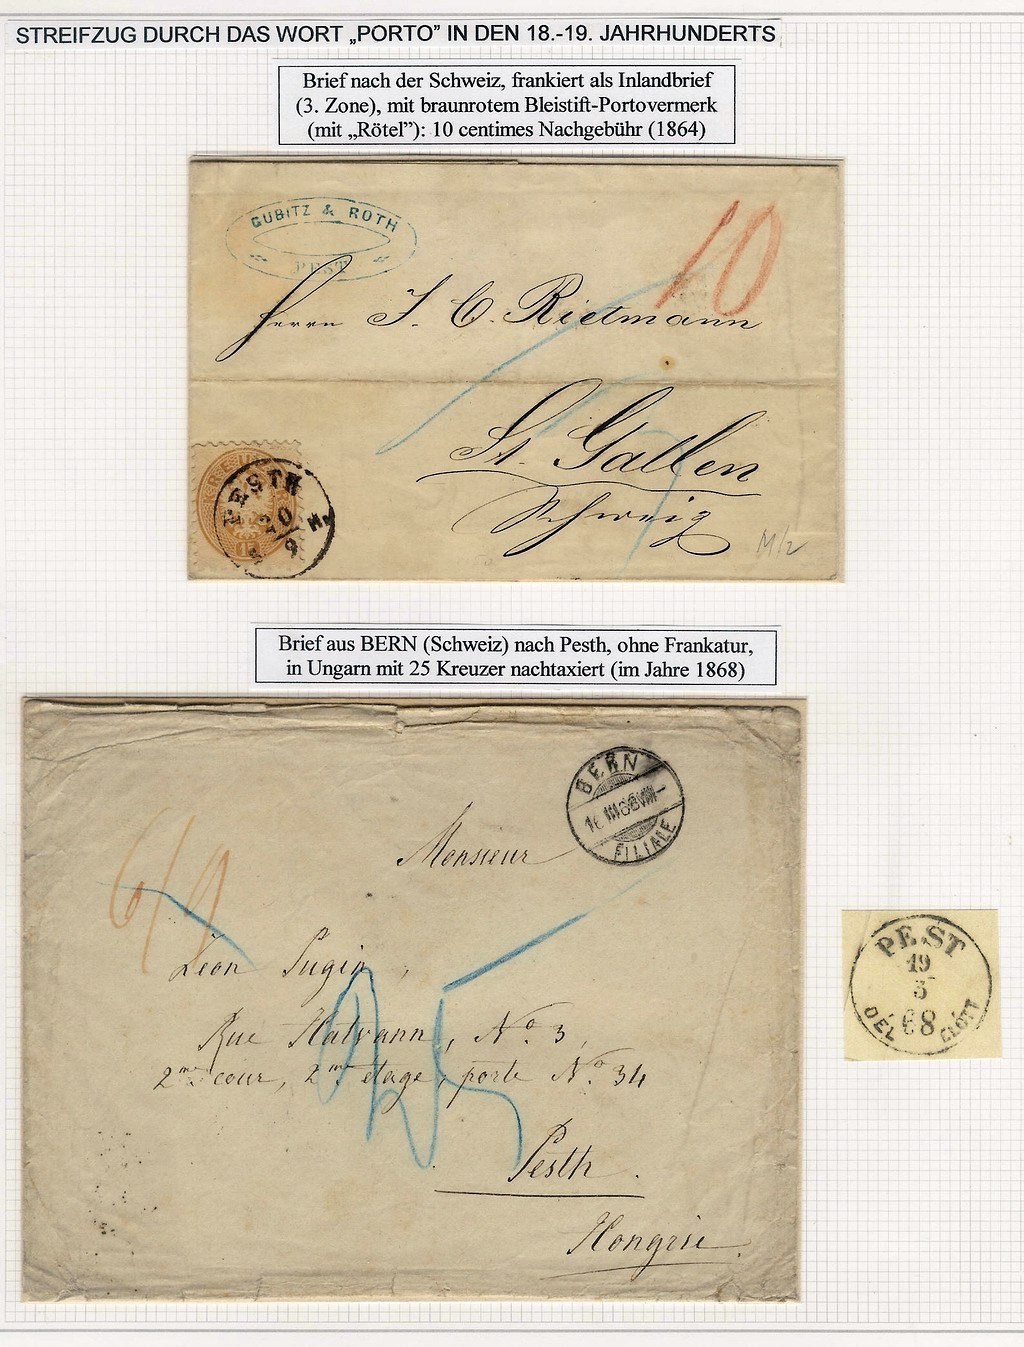 STREIFZUG DURCH DAS WORT „PORTO” IN DEN 18.-19. JAHRHUNDERTS
Brief nach der Schweiz, frankiert als Inlandbrief
(3. Zone), mit braunrotem Bleistift-Portovermerk
(mit „Rötel”): 10 centimes Nachgebühr (1864)
GUBITZ & ROTH
PEST
10
Herrn J. C. Rietmann
St. Gallen
Schweiz
PESTH
20
9
M/2
Brief aus BERN (Schweiz) nach Pesth, ohne Frankatur,
in Ungarn mit 25 Kreuzer nachtaxiert (im Jahre 1868)
BERN
FILIALE
Monsieur
Léon Pugin,
Rue Hatvann, No. 3,
2me cour, 2me étage, porte No. 34
25
Pesth.
Hongrie.
PEST
19
3
68
DEL ELŐTT